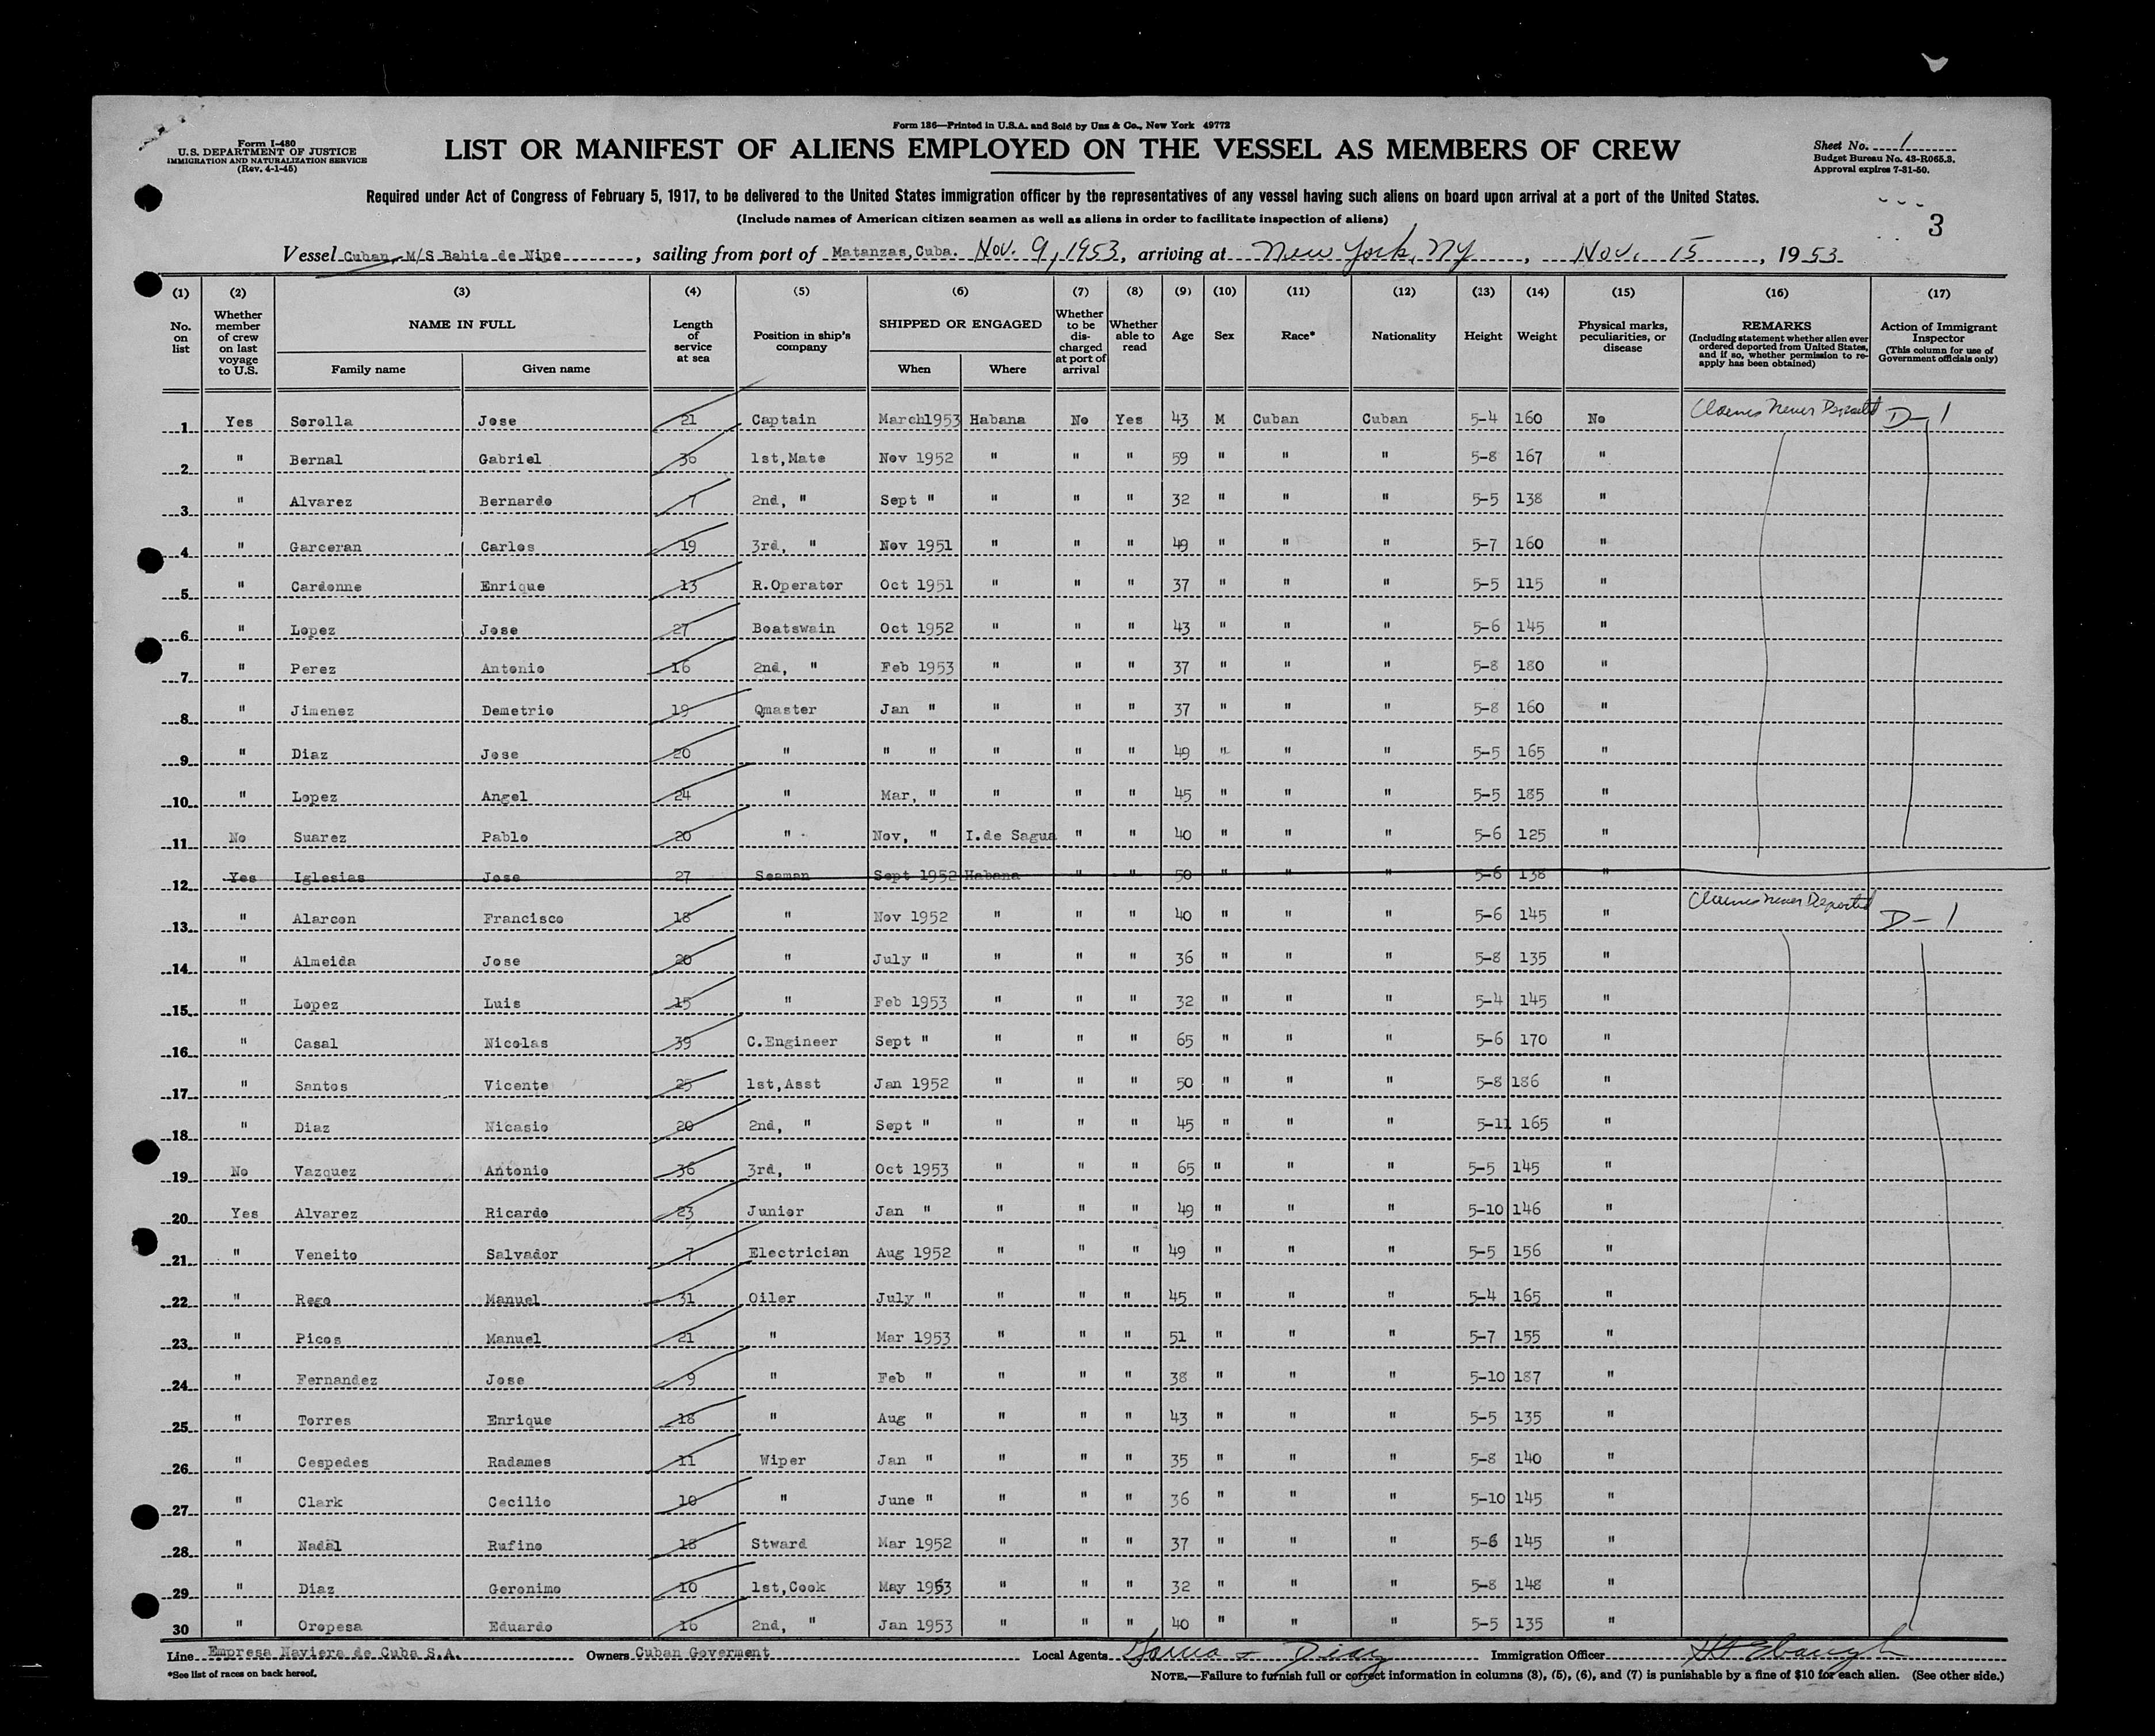 Form 186—Printed in U.S.A. and Sold by Unz & Co., New York 49772
Form I-480
U.S. DEPARTMENT OF JUSTICE
IMMIGRATION AND NATURALIZATION SERVICE
(Rev. 4-1-45)
LIST OR MANIFEST OF ALIENS EMPLOYED ON THE VESSEL AS MEMBERS OF CREW
Sheet No. 1
Budget Bureau No. 43-R065.3.
Approval expires 7-31-50.
Required under Act of Congress of February 5, 1917, to be delivered to the United States immigration officer by the representatives of any vessel having such aliens on board upon arrival at a port of the United States.
(Include names of American citizen seamen as well as aliens in order to facilitate inspection of aliens)
3
Vessel Cuban, M/S Bahia de Nipe, sailing from port of Matanzas,Cuba. Nov. 9, 1953, arriving at New York, NY, Nov. 15, 1953
(1) (2) (3) (4) (5) (6) (7) (8) (9) (10) (11) (12) (13) (14) (15) (16) (17)
No. on list
Whether member of crew on last voyage to U.S.
NAME IN FULL
Family name
Given name
Length of service at sea
Position in ship's company
SHIPPED OR ENGAGED
When
Where
Whether to be discharged at port of arrival
Whether able to read
Age
Sex
Race*
Nationality
Height
Weight
Physical marks, peculiarities, or disease
REMARKS
(Including statement whether alien ever ordered deported from United States, and if so, whether permission to reapply has been obtained)
Action of Immigrant Inspector
(This column for use of Government officials only)
1 Yes Sorolla Jose 21 Captain March1953 Habana No Yes 43 M Cuban Cuban 5-4 160 No Claims Never Deported D-1
2 " Bernal Gabriel 36 1st,Mate Nov 1952 " " " 59 " " " 5-8 167 "
3 " Alvarez Bernardo 7 2nd, " Sept " " " " 32 " " " 5-5 138 "
4 " Garceran Carlos 19 3rd, " Nov 1951 " " " 49 " " " 5-7 160 "
5 " Cardonne Enrique 13 R.Operator Oct 1951 " " " 37 " " " 5-5 115 "
6 " Lopez Jose 27 Boatswain Oct 1952 " " " 43 " " " 5-6 145 "
7 " Perez Antonio 16 2nd, " Feb 1953 " " " 37 " " " 5-8 180 "
8 " Jimenez Demetrio 19 Qmaster Jan " " " " 37 " " " 5-8 160 "
9 " Diaz Jose 20 " " " " " " 49 " " " 5-5 165 "
10 " Lopez Angel 24 " Mar, " " " " 45 " " " 5-5 185 "
11 No Suarez Pablo 20 " Nov, " I.de Sagua " " 40 " " " 5-6 125 "
12 Yes Iglesias Jose 27 Seaman Sept 1952 Habana " " 50 " " " 5-6 138 "
13 " Alarcon Francisco 18 " Nov 1952 " " " 40 " " " 5-6 145 " Claims Never Deported D-1
14 " Almeida Jose 20 " July " " " " 36 " " " 5-8 135 "
15 " Lopez Luis 15 " Feb 1953 " " " 32 " " " 5-4 145 "
16 " Casal Nicolas 39 C.Engineer Sept " " " " 65 " " " 5-6 170 "
17 " Santos Vicente 25 1st,Asst Jan 1952 " " " 50 " " " 5-8 186 "
18 " Diaz Nicasio 20 2nd, " Sept " " " " 45 " " " 5-11 165 "
19 No Vazquez Antonio 36 3rd, " Oct 1953 " " " 65 " " " 5-5 145 "
20 Yes Alvarez Ricardo 23 Junior Jan " " " " 49 " " " 5-10 146 "
21 " Veneito Salvador 7 Electrician Aug 1952 " " " 49 " " " 5-5 156 "
22 " Rego Manuel 31 Oiler July " " " " 45 " " " 5-4 165 "
23 " Picos Manuel 21 " Mar 1953 " " " 51 " " " 5-7 155 "
24 " Fernandez Jose 9 " Feb " " " " 38 " " " 5-10 187 "
25 " Torres Enrique 18 " Aug " " " " 43 " " " 5-5 135 "
26 " Cespedes Radames 11 Wiper Jan " " " " 35 " " " 5-8 140 "
27 " Clark Cecilio 10 " June " " " " 36 " " " 5-10 145 "
28 " Nadal Rufino 18 Stward Mar 1952 " " " 37 " " " 5-6 145 "
29 " Diaz Geronimo 10 1st,Cook May 1953 " " " 32 " " " 5-8 148 "
30 " Oropesa Eduardo 16 2nd, " Jan 1953 " " " 40 " " " 5-5 135 "
Line Empresa Naviera de Cuba S.A. Owners Cuban Goverment Local Agents Garcia & Diaz Immigration Officer
*See list of races on back hereof.
NOTE.—Failure to furnish full or correct information in columns (3), (5), (6), and (7) is punishable by a fine of $10 for each alien. (See other side.)